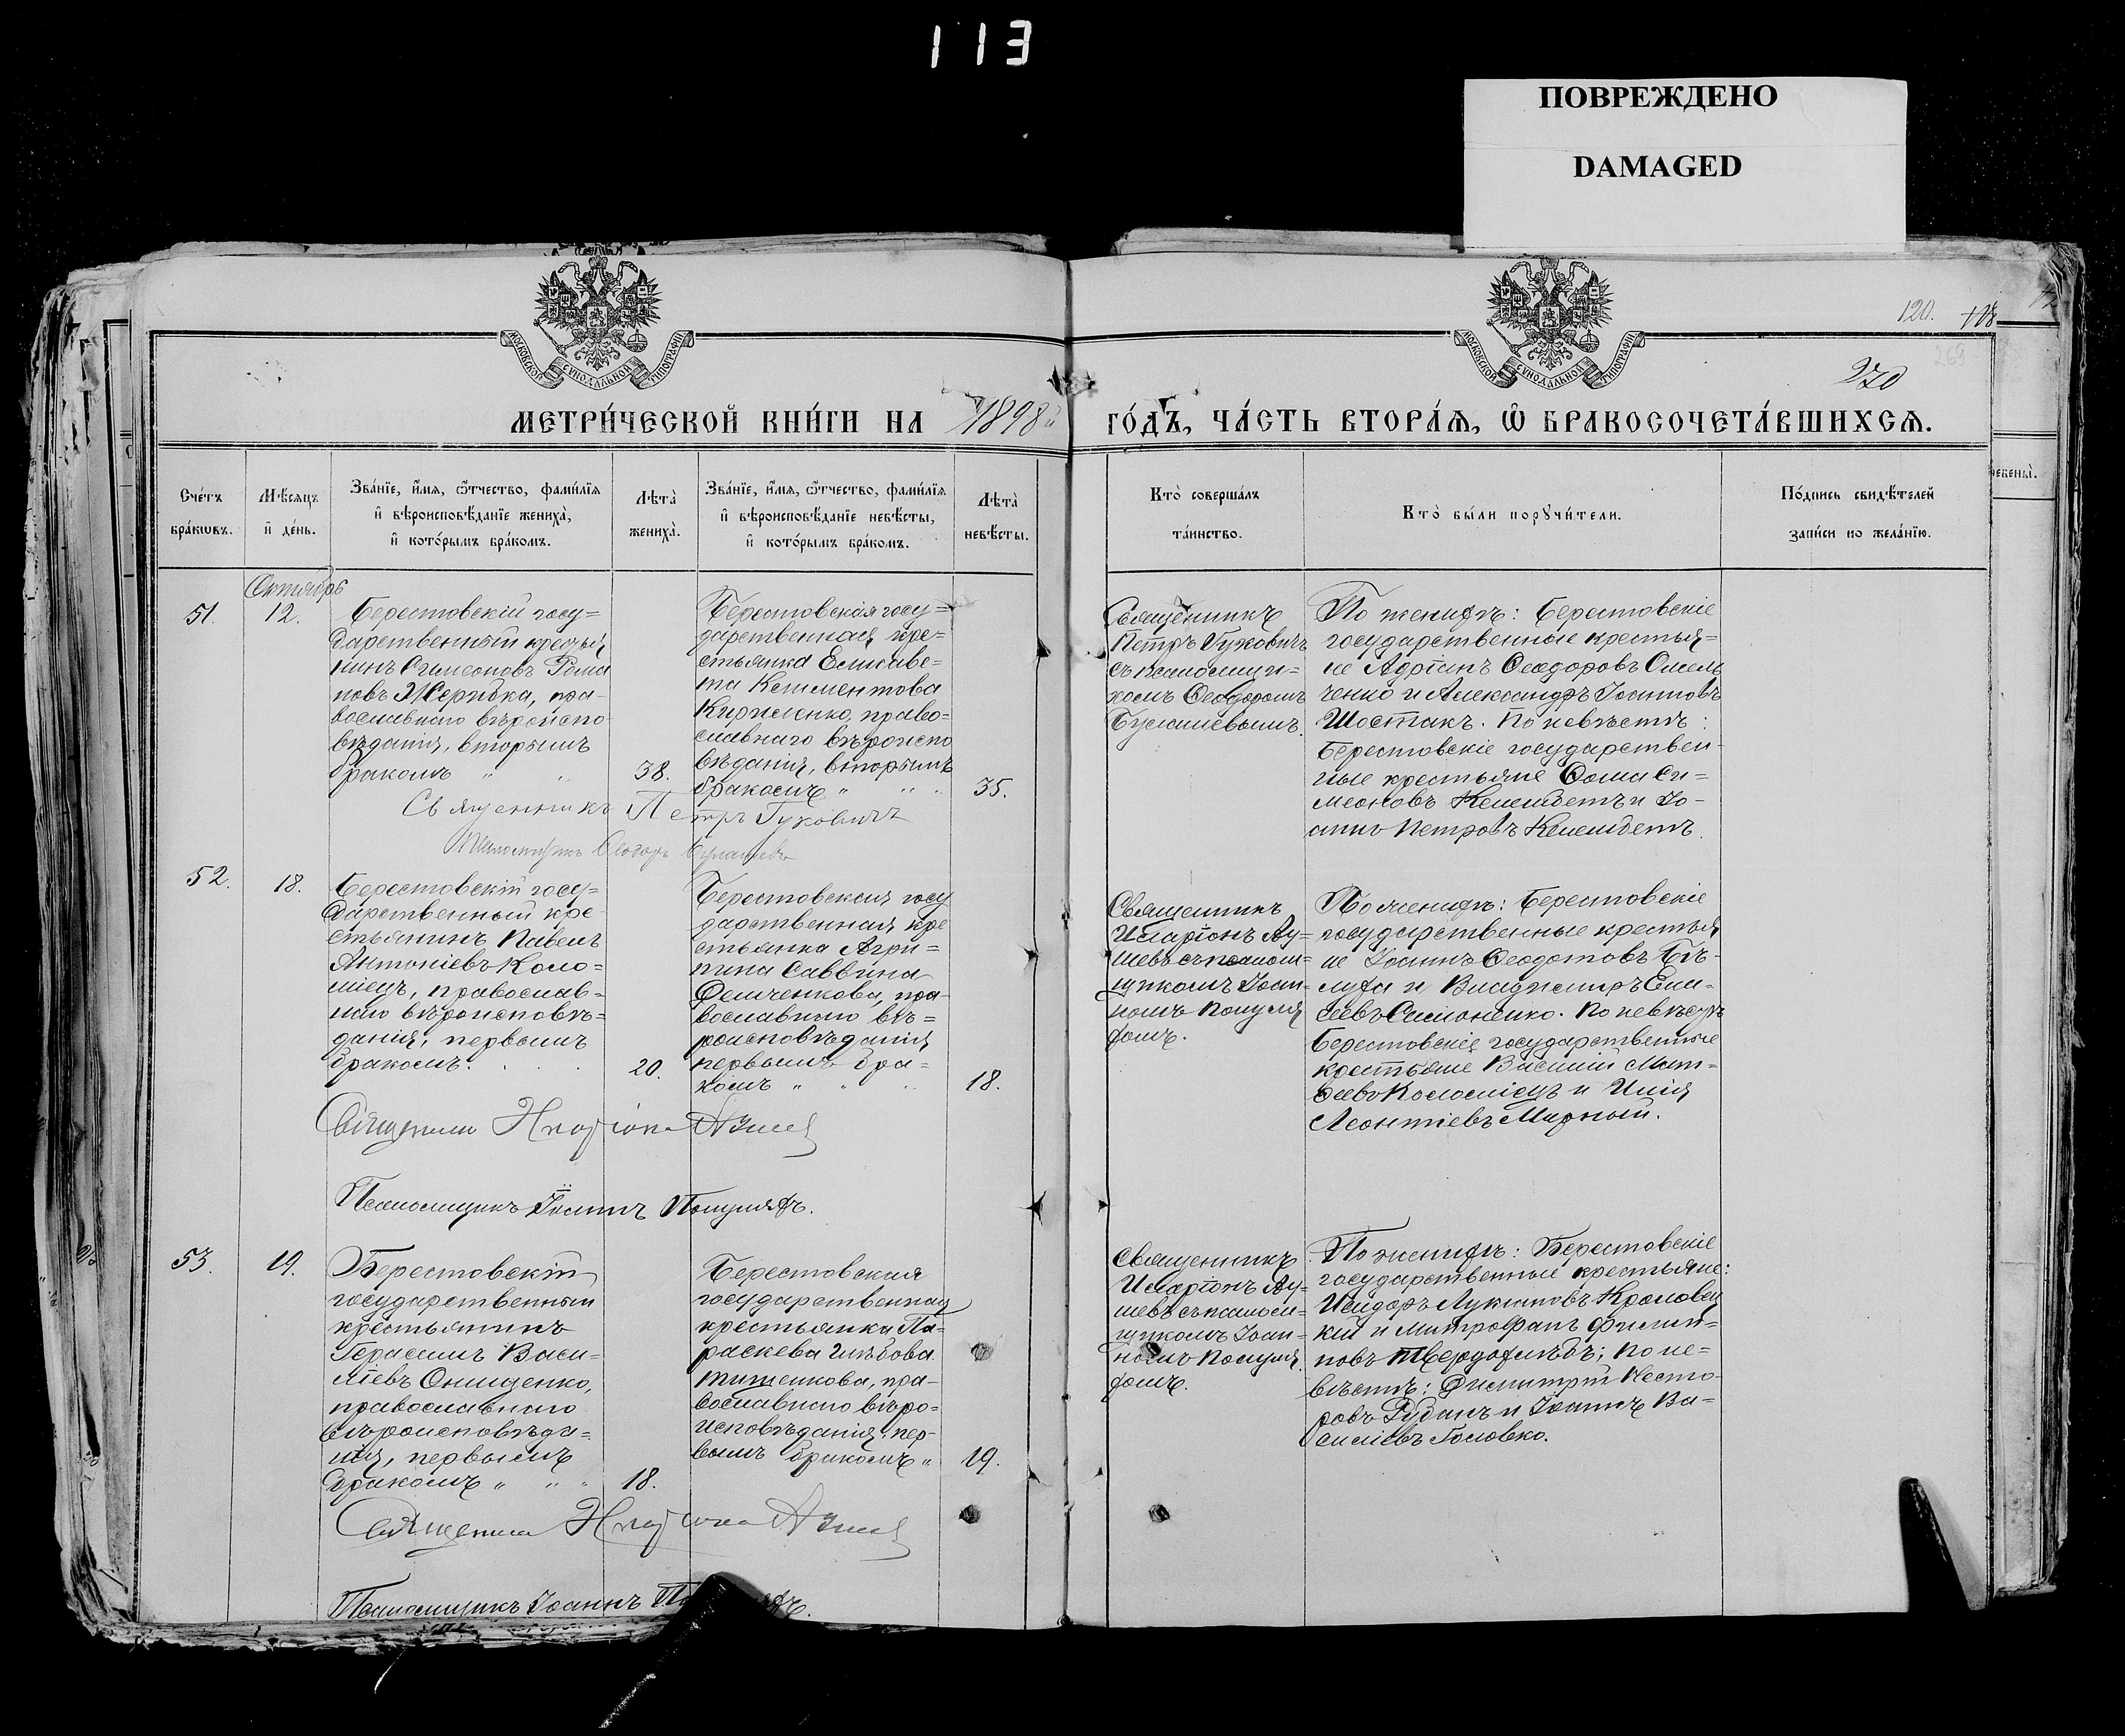 113
ПОВРЕЖДЕНО
DAMAGED
МОСКОВСКОЙ СѴНОДАЛЬНОЙ ТИПОГРАФІИ
МОСКОВСКОЙ СѴНОДАЛЬНОЙ ТИПОГРАФІИ
120.
270
МЕТРИ́ЧЕСКОЙ КНИ́ГИ НА 1898й ГО́ДЪ, ЧА́СТЬ ВТОРА́Ѧ, Ѽ БРАКОСОЧЕТА́ВШИХСѦ.
Сче́тъ
бра́кѡвъ.
Мѣ́сѧцъ
и҆ де́нь.
Зва́нїе, и҆́мѧ, ѻ҆́тчество, фами́лїѧ
и҆ вѣроисповѣ́данїе жениха̀,
и҆ кото́рымъ бра́комъ.
Лѣта̀
жениха̀.
Зва́нїе, и҆́мѧ, ѻ҆́тчество, фами́лїѧ
и҆ вѣроисповѣ́данїе невѣ́сты,
и҆ кото́рымъ бра́комъ.
Лѣта̀
невѣ́сты.
Кто̀ соверша́лъ
та́инство.
Кто̀ бы́ли порꙋчи́тели.
По́дпись свидѣ́телей
за́писи по жела́нїю.
Октябрь
51.
12.
Берестовскій госу=
дарственный крестья
нинъ Сѵмеоновъ Рома
новъ Жерибка, пра-
вославнаго вѣроиспо
вѣданія, вторымъ
бракомъ " "
38.
Берестовская госу=
дарственная кре=
стьянка Елисаве=
та Климентова
Кириленко, право=
славнаго вѣроиспо
вѣданія, вторымъ
бракомъ " " "
35.
Священникъ
Петръ Гуковичъ
съ псаломщи=
комъ Ѳеодоромъ
Булашевымъ.
По женихѣ: Берестовскіе
государственные крестья=
не Адріанъ Ѳеодоровъ Омель
ченко и Александръ Іоанновъ
Шостакъ. По невѣстѣ:
Берестовскіе государствен-
ные крестьяне Ѳома Си=
меоновъ Келембетъ и Іо-
аннъ Петровъ Келембетъ.
Священникъ Петръ Гуковичъ
Псаломщикъ Ѳеодоръ Булашевъ
52.
18.
Берестовскій госу=
дарственный кре
стьянинъ Павелъ
Антоніевъ Коло=
міецъ, православ=
наго вѣроисповѣ=
данія, первымъ
бракомъ. . . .
20.
Берестовская госу
дарственная кре
стьянка Агри=
пина Саввина
Демченкова, пра-
вославнаго вѣ=
роисповѣданія
первымъ бра=
комъ " " "
18.
Священникъ
Иларіонъ Ау=
шевъ съ псалом=
щикомъ Іоан=
номъ Полуля
хомъ.
По женихѣ: Берестовскіе
государственные крестья
не Іоаннъ Ѳеодотовъ Бѣ-
луха и Владиміръ Ели=
сеевъ Симоненко. По невѣстѣ
Берестовскіе государственные
крестьяне Василій Мат=
ѳеевъ Коломіецъ и Илія
Леонтіевъ Мирный.
Священникъ Иларіонъ Аушевъ
Псаломщикъ Іоаннъ Полуляхъ.
53.
19.
Берестовскій
государственный
крестьянинъ
Герасимъ Васи=
ліевъ Онищенко,
православнаго
вѣроисповѣда=
нія, первымъ
бракомъ " " "
18.
Берестовская
государственная
крестьянка Па=
раскева Глѣбова
Тишенкова, пра-
вославнаго вѣро=
исповѣданія, пер-
вымъ бракомъ "
19.
Священникъ
Иларіонъ Ау=
шевъ съ псалом=
щикомъ Іоан=
номъ Полуля
хомъ.
По женихѣ: Берестовскіе
государственные крестьяне:
Исидоръ Лукіановъ Кроловец
кій и Митрофанъ Филип=
повъ Твердохлѣбъ; по не=
вѣстѣ: Димитрій Несто
ровъ Рубанъ и Іоаннъ Ва=
силіевъ Головко.
Священникъ Иларіонъ Аушевъ
Псаломщикъ Іоаннъ